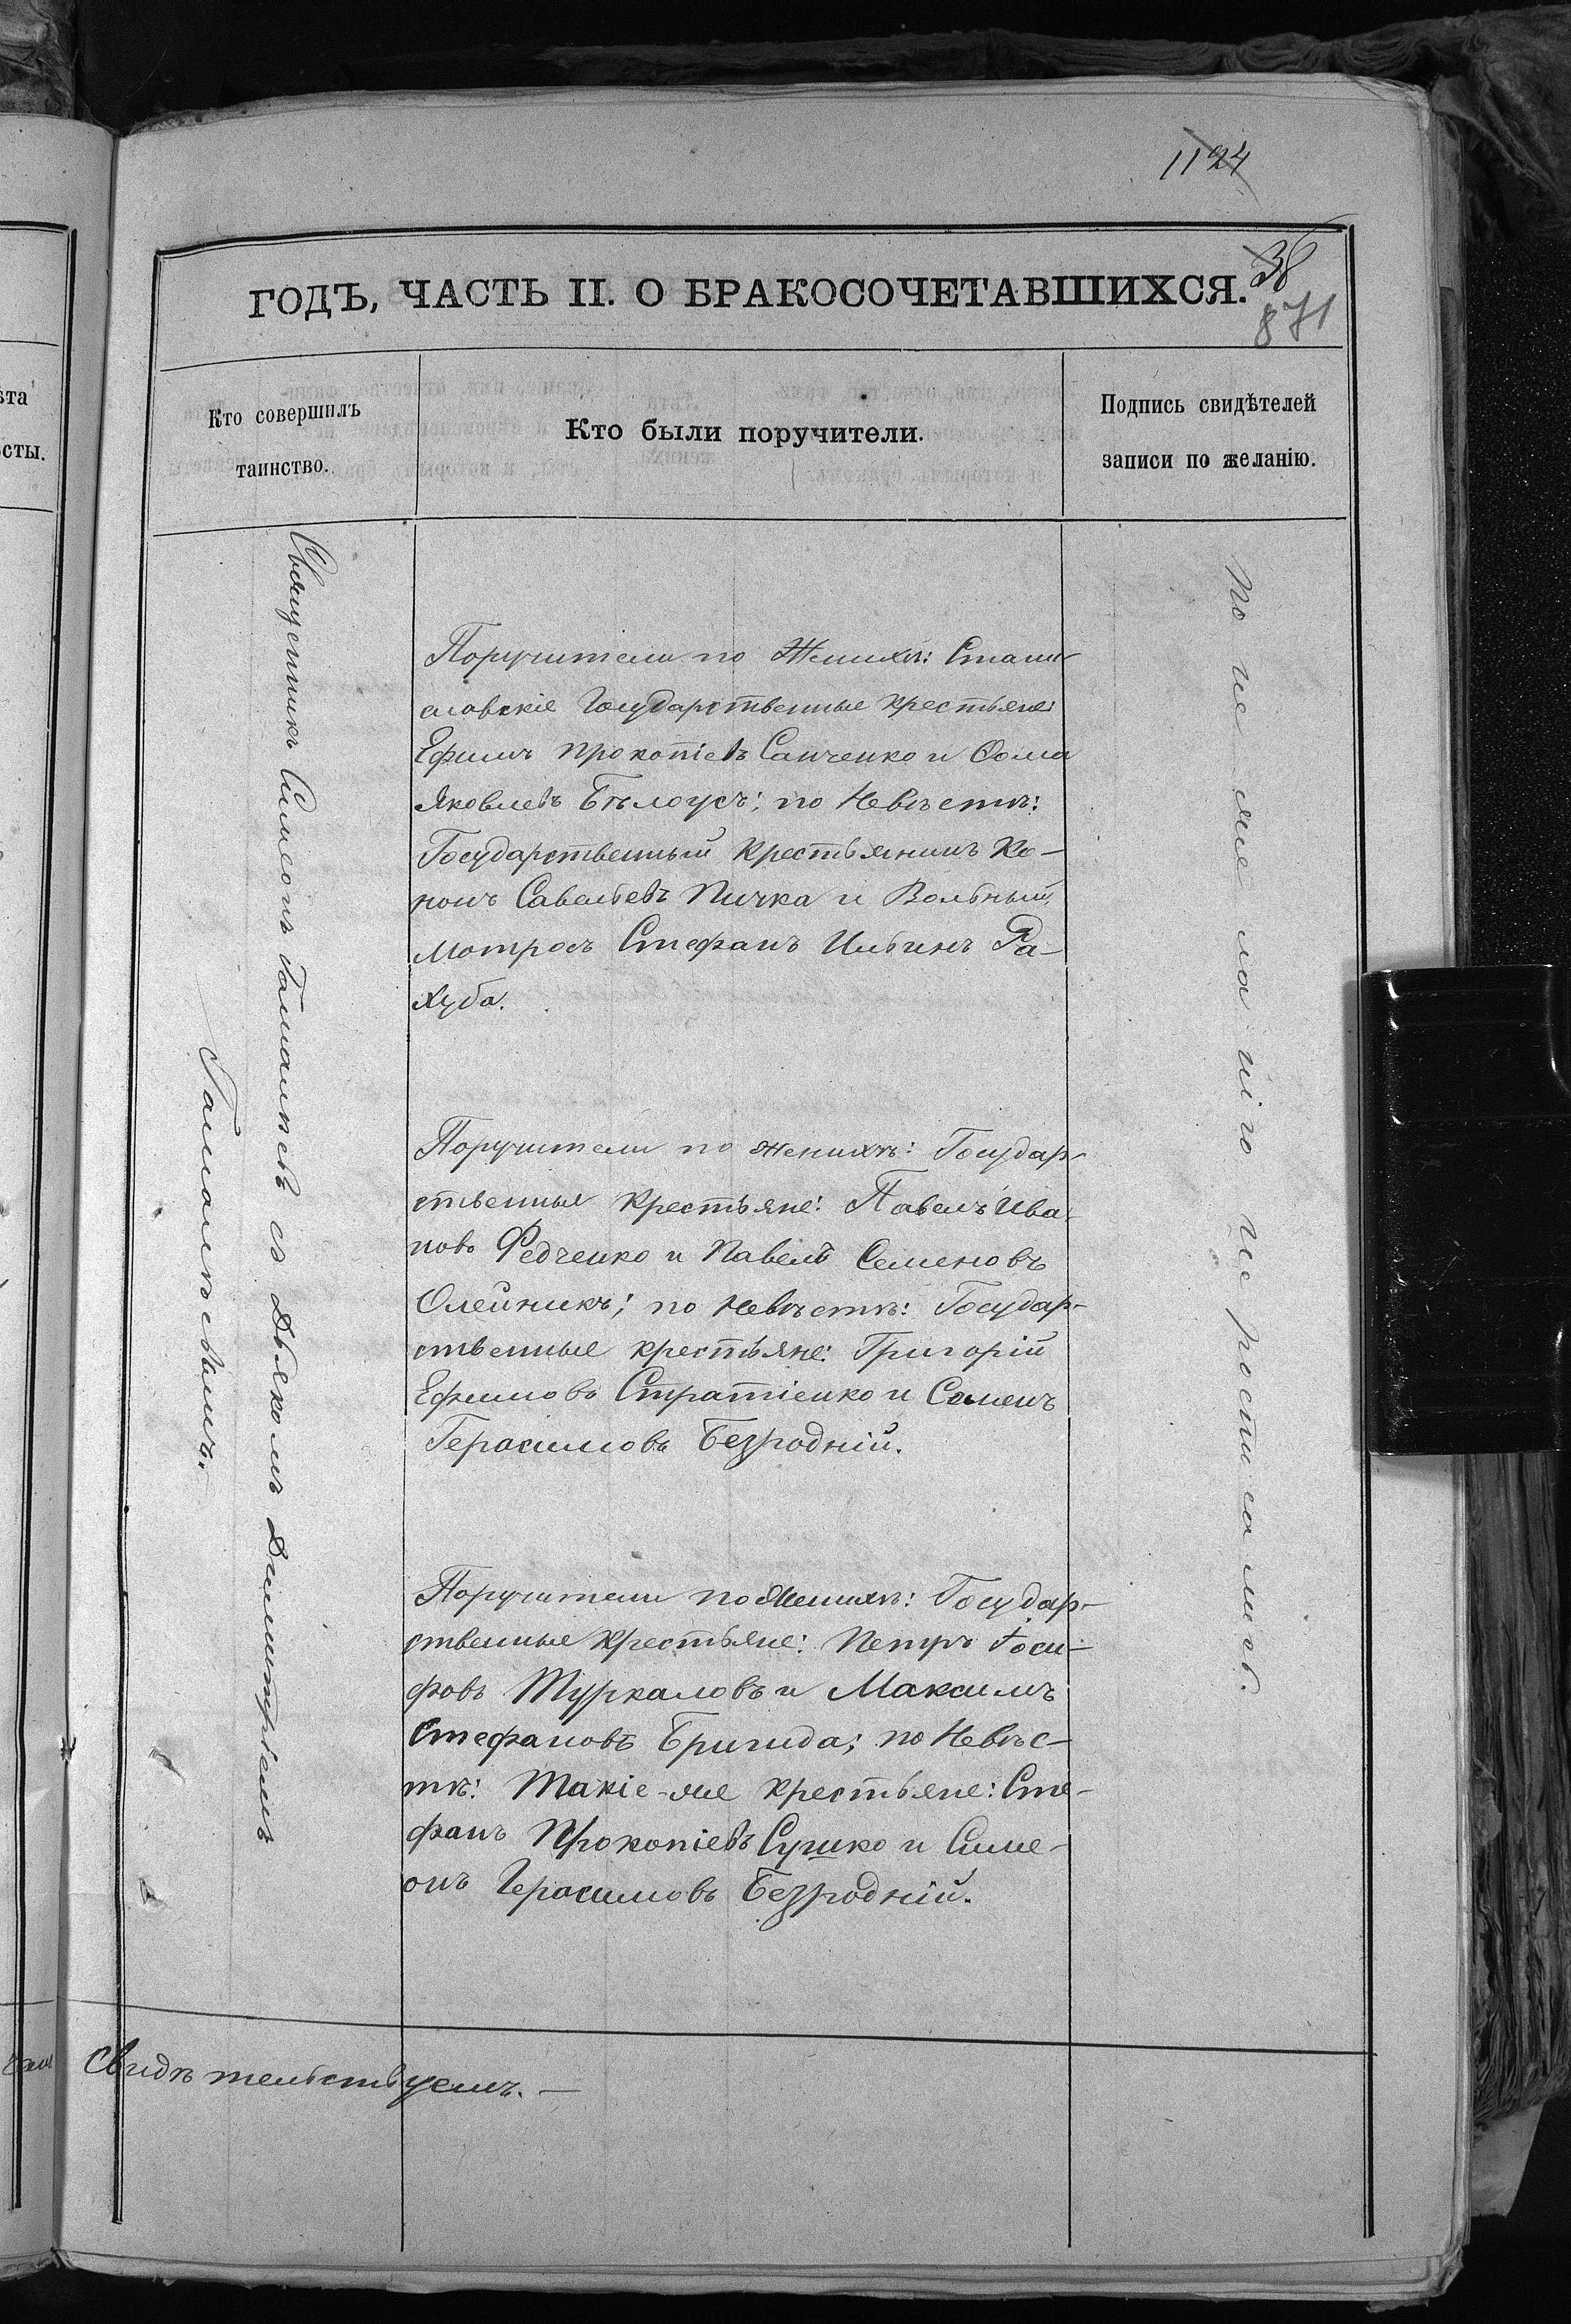 1124
38
871
ГОДЪ, ЧАСТЬ II. О БРАКОСОЧЕТАВШИХСЯ.
Кто совершилъ
таинство.
Кто были поручители.
Подпись свидѣтелей
записи по желанію.
Священникъ Симеонъ Гамалѣевъ съ Дьякомъ Димитріемъ
Гамалѣевымъ.
Поручители по Женихѣ: Стани-
славскіе Государственные крестьяне:
Ефимъ Прокопіевъ Санченко и Ѳома
Яковлевъ Бѣлоусъ; по Невѣстѣ:
Государственный Крестьянинъ Ко-
нонъ Савельевъ Пичка и Вольный
Мотросъ Стефанъ Ильинъ Ра-
хуба.
Поручители по Женихѣ: Государ-
ственные Крестьяне: Павелъ Ива-
новъ Федченко и Павелъ Семеновъ
Олейникъ; по Невѣстѣ: Государ-
ственные крестьяне: Григорій
Ефимовъ Стратіенко и Семенъ
Герасимовъ Безродній.
Поручители по Женихѣ: Государ-
ственные Крестьяне: Петръ Іоси-
фовъ Туркаловъ и Максимъ
Стефановъ Бригида; по Невѣс-
тѣ: Такіе-же крестьяне: Сте-
фанъ Прокопіевъ Сушко и Симе-
онъ Герасимовъ Безродній.
По не желанію не росписались.
Свидѣтельствуемъ. —